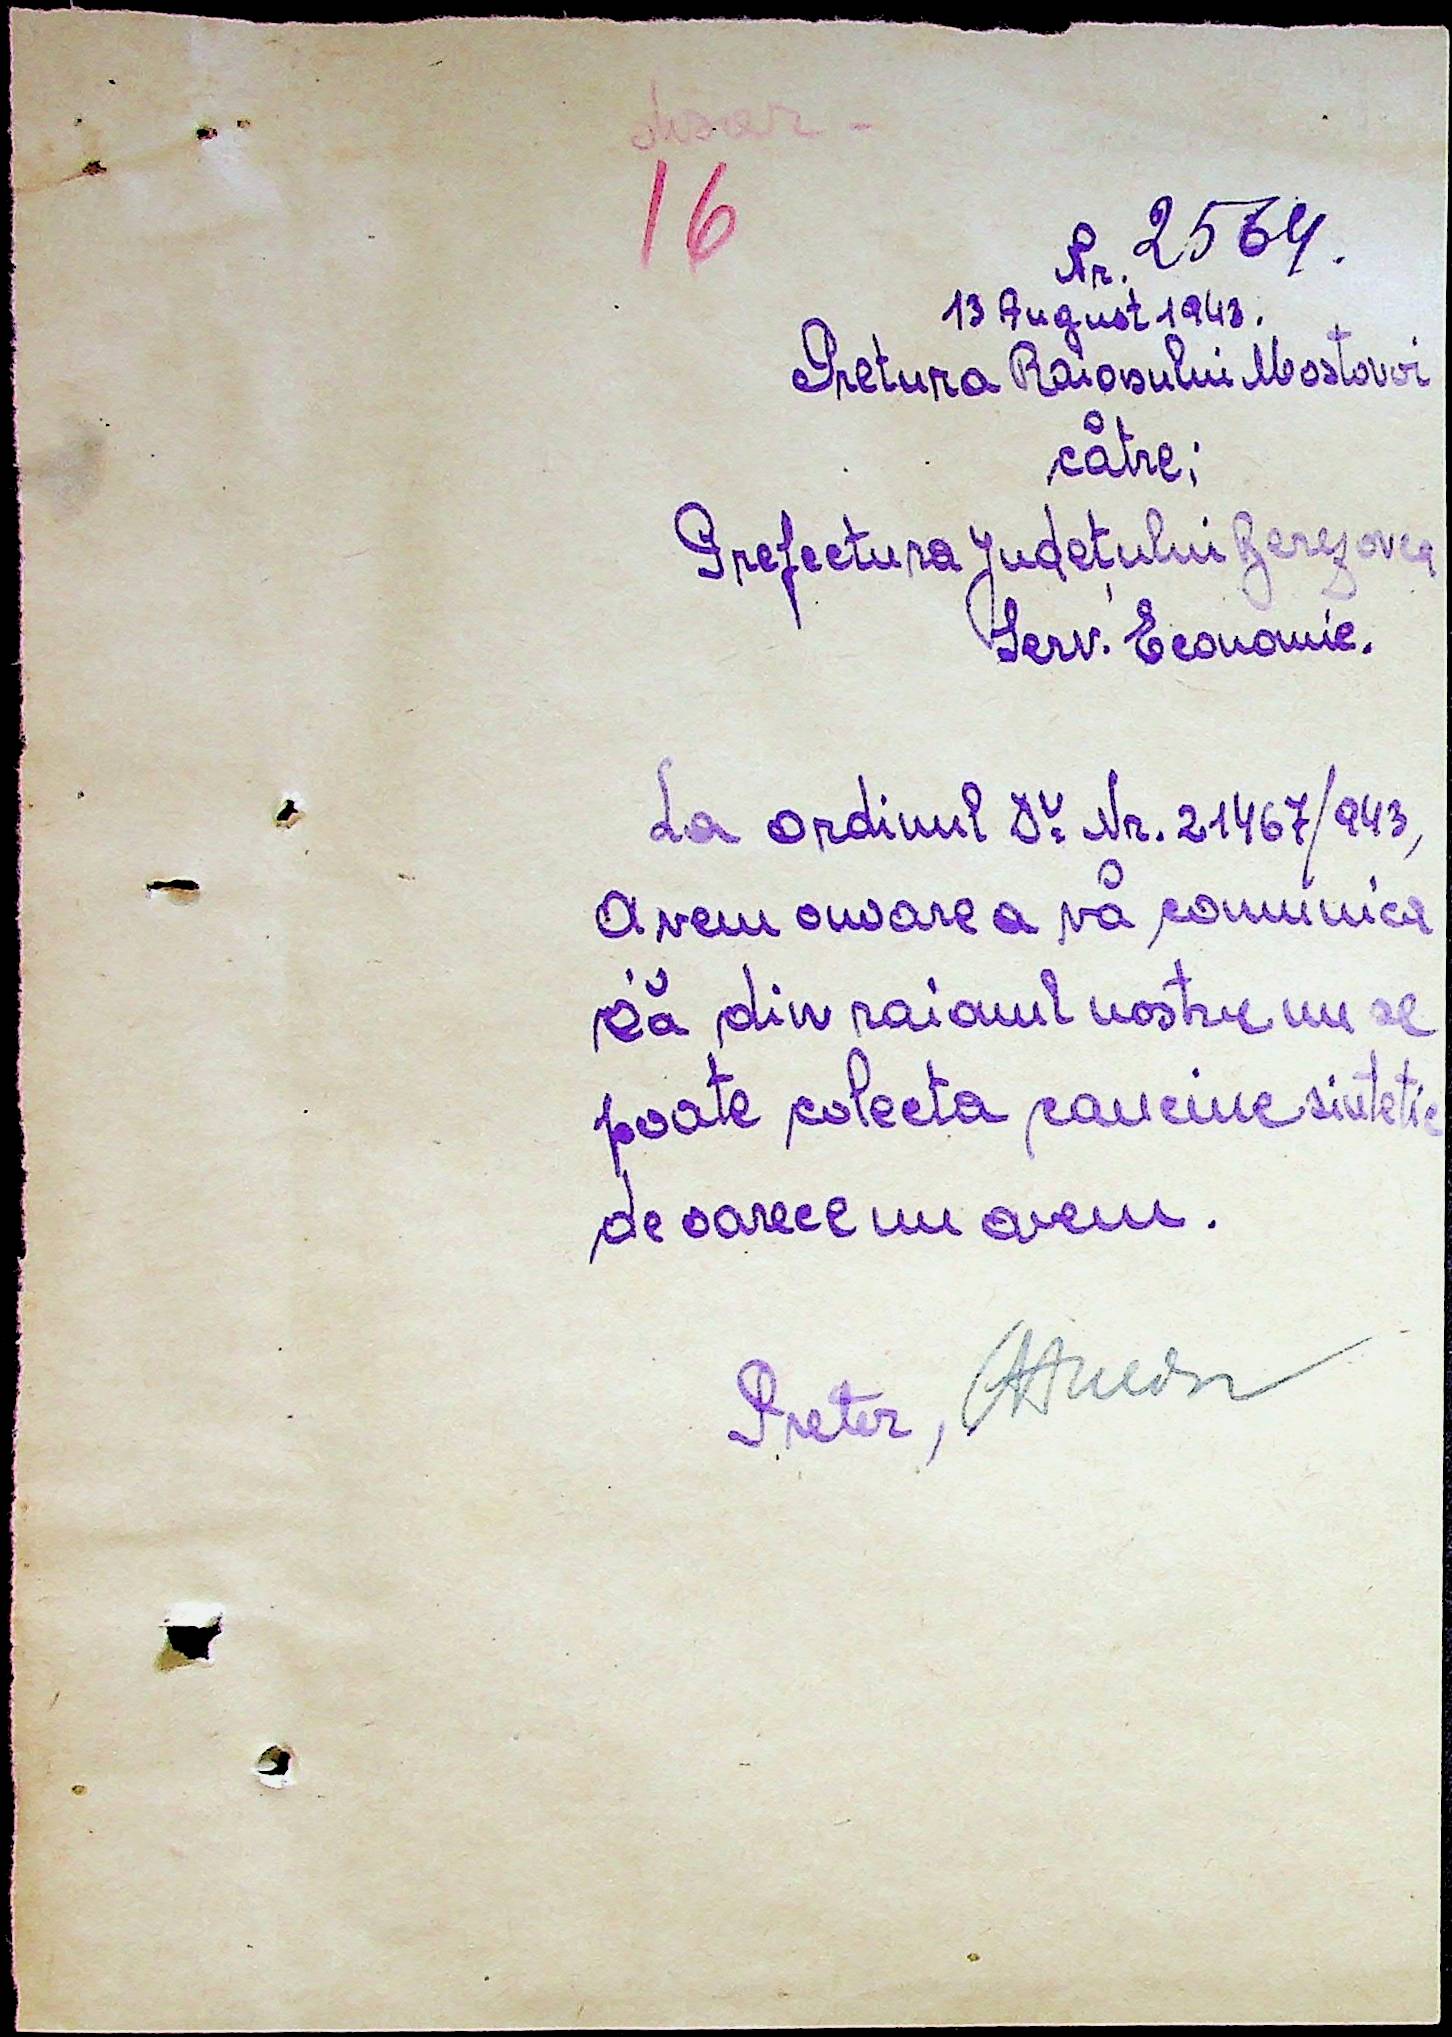 dosar -
16
Nr. 2564.
13 August 1943.
Pretura Raionului Mostovoi
către;
Prefectura Județului Berezovca
Serv. Economic.
La ordinul Dv. Nr. 21467/943,
avem onoarea vă comunica
că din raionul nostru nu se
poate colecta cauciuc sintetic
de oarece nu avem.
Pretor,